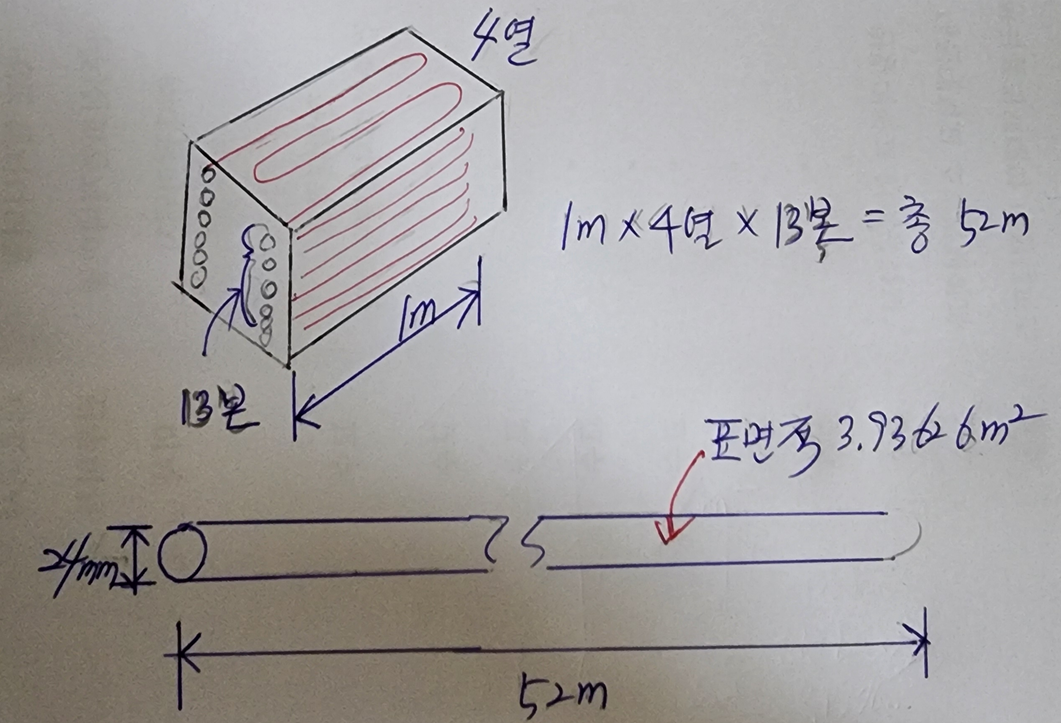 4열
1m × 4열 × 13본 = 총 52m
1m
13본
표면적 3.93626m²
24mm
52m